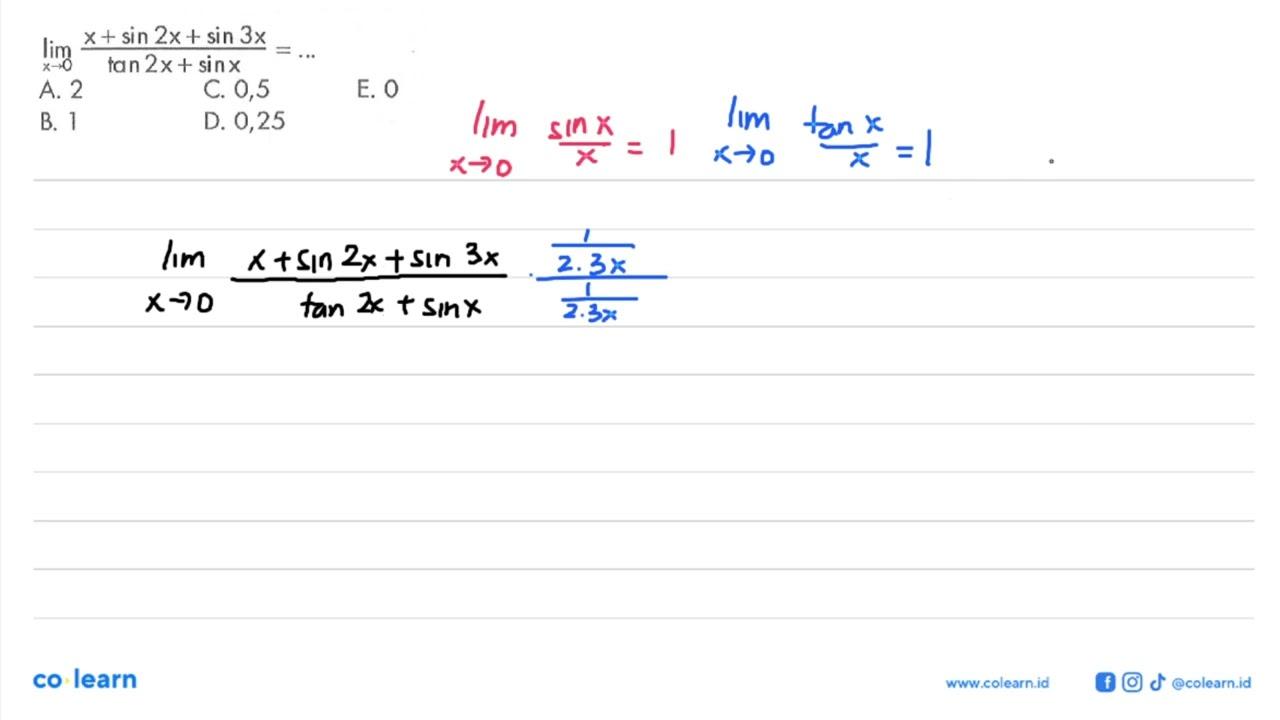 lim x→0 (x + sin 2x + sin 3x)/(tan 2x + sin x) = ...
A. 2 C. 0,5 E. 0
B. 1 D. 0,25
lim x→0 sin x/x = 1 lim x→0 tan x/x = 1
lim x→0 (x + sin 2x + sin 3x)/(tan 2x + sin x) · (1/(2.3x))/(1/(2.3x))
co·learn
www.colearn.id @colearn.id